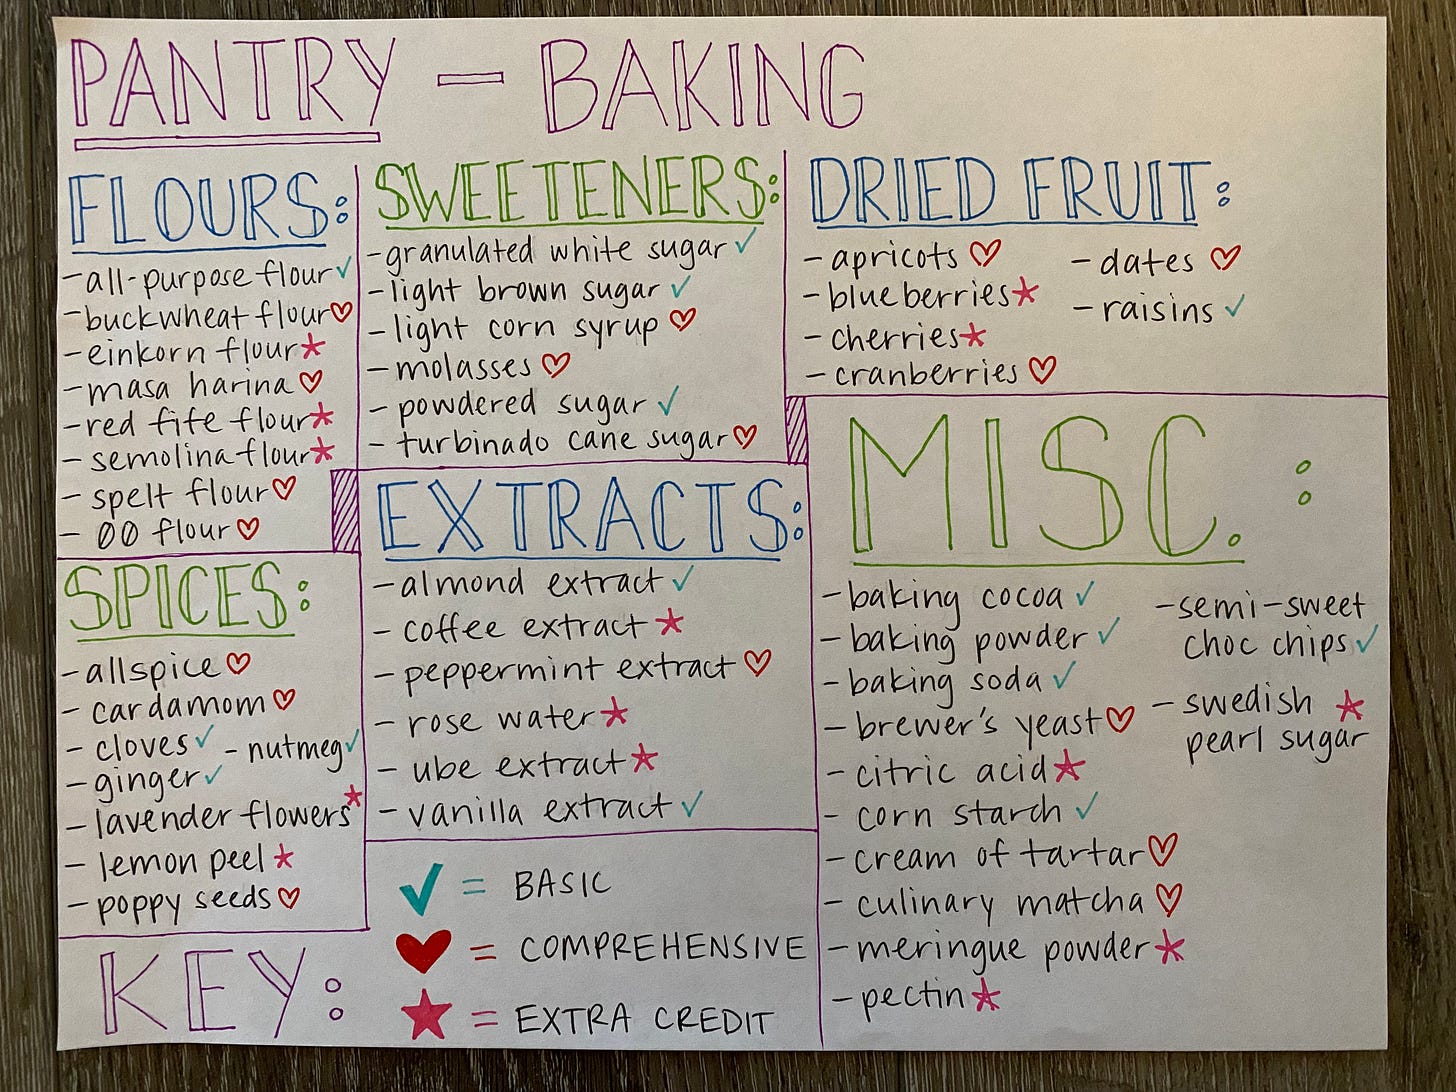 PANTRY - BAKING
FLOURS:
-all-purpose flour ✓
-buckwheat flour ♡
-einkorn flour *
-masa harina ♡
-red fife flour *
-semolina flour *
- spelt flour ♡
- 00 flour ♡
SPICES:
-allspice ♡
- cardamom ♡
- cloves ✓ - nutmeg ✓
-ginger ✓
- lavender flowers *
- lemon peel *
- poppy seeds ♡
SWEETENERS:
-granulated white sugar ✓
-light brown sugar ✓
-light corn syrup ♡
- molasses ♡
- powdered sugar ✓
- turbinado cane sugar ♡
EXTRACTS:
-almond extract ✓
- coffee extract *
- peppermint extract ♡
- rose water *
- ube extract *
- vanilla extract ✓
DRIED FRUIT:
- apricots ♡
- blueberries *
- cherries *
- cranberries ♡
- dates ♡
- raisins ✓
MISC. :
-baking cocoa ✓
-baking powder ✓
-baking soda ✓
- brewer's yeast ♡
- citric acid *
- corn starch ✓
- cream of tartar ♡
- culinary matcha ♡
- meringue powder *
- pectin *
-semi-sweet
choc chips ✓
- swedish *
pearl sugar
KEY:
✓ = BASIC
♥ = COMPREHENSIVE
★ = EXTRA CREDIT